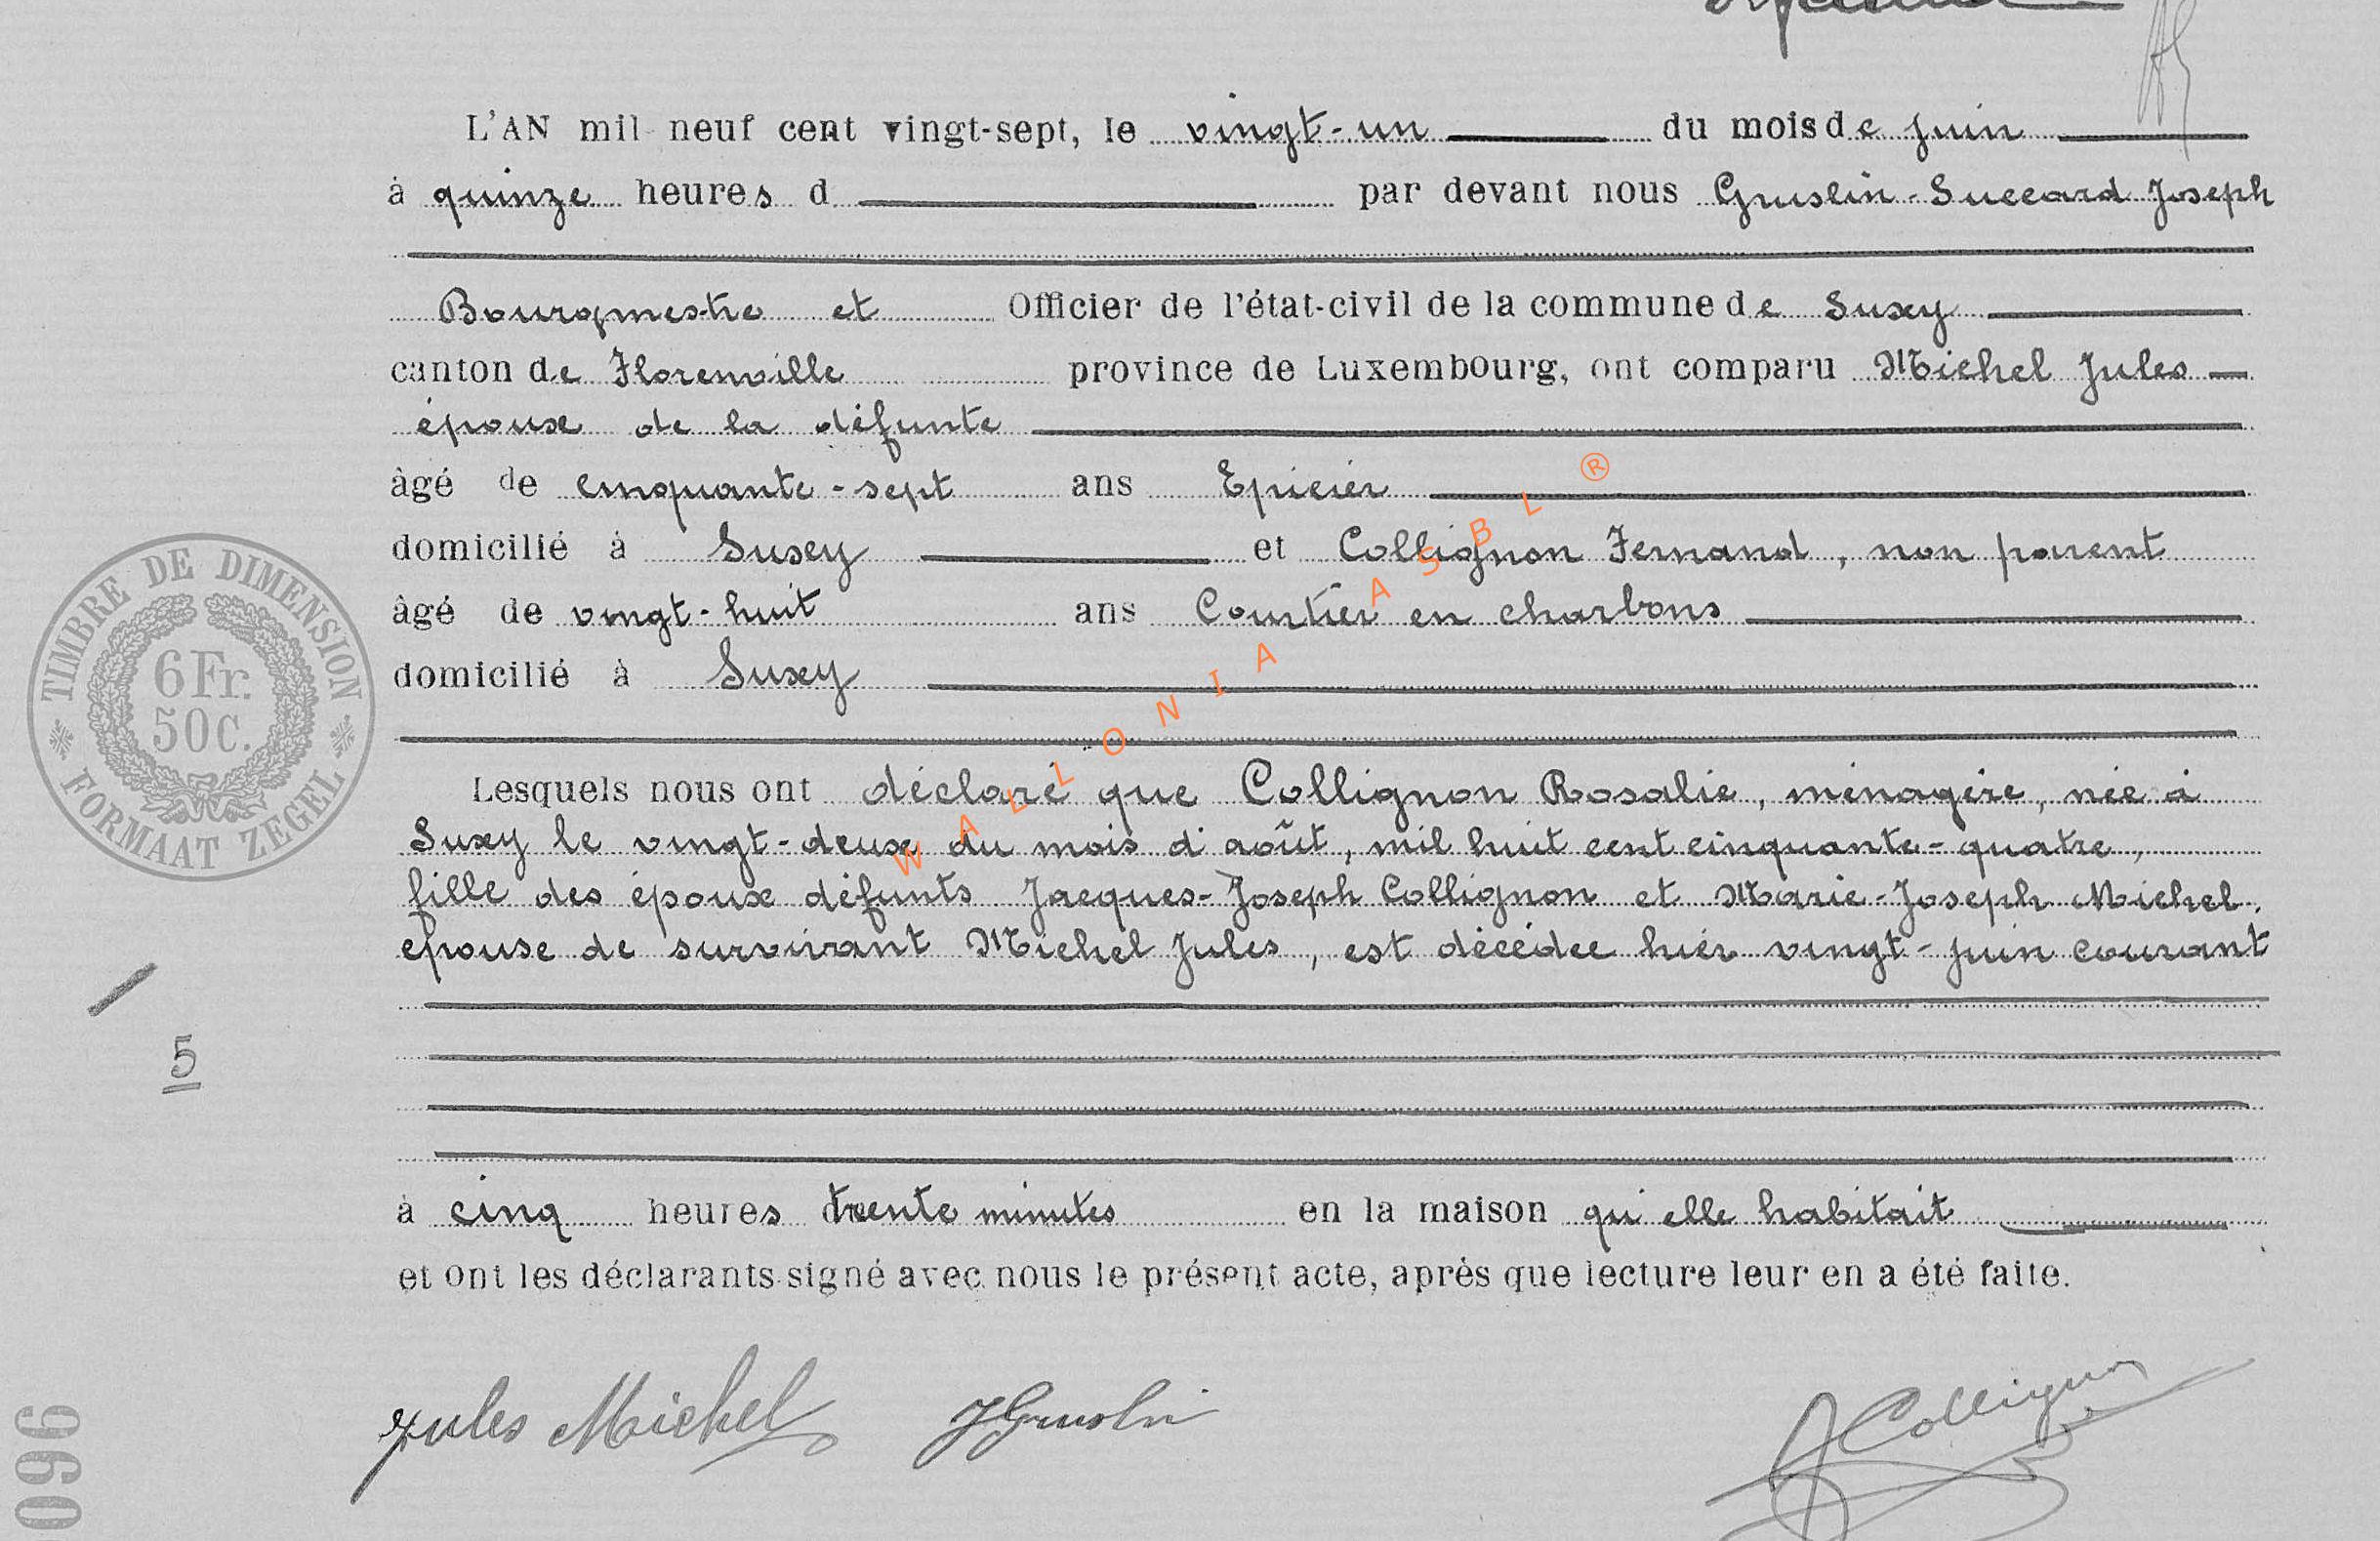 L'AN mil neuf cent vingt-sept, le vingt-un du mois de juin
à quinze heures d par devant nous Gruslin-Succard Joseph
Bourgmestre et Officier de l'état-civil de la commune de Suxy
canton de Florenville province de Luxembourg, ont comparu Michel Jules
époux de la défunte
âgé de cinquante-sept ans Epicier
domicilié à Suxey et Collignon Fernand, non parent
âgé de vingt-huit ans Courtier en charbons
domicilié à Suxy
Lesquels nous ont déclaré que Collignon Rosalie, ménagère, née à
Suxy le vingt-deux du mois d'août, mil huit cent cinquante-quatre,
fille des époux défunts Jacques-Joseph Collignon et Marie-Joseph Michel,
epouse de survivant Michel Jules, est décédée hier vingt-juin courant
à cinq heures trente minutes en la maison qu'elle habitait
et ont les déclarants signé avec nous le présent acte, après que lecture leur en a été faite.
Jules Michel JGruslin Collignon
TIMBRE DE DIMENSION
6 Fr.
50 C.
FORMAAT ZEGEL
5
096
WALLONIA ASBL ®